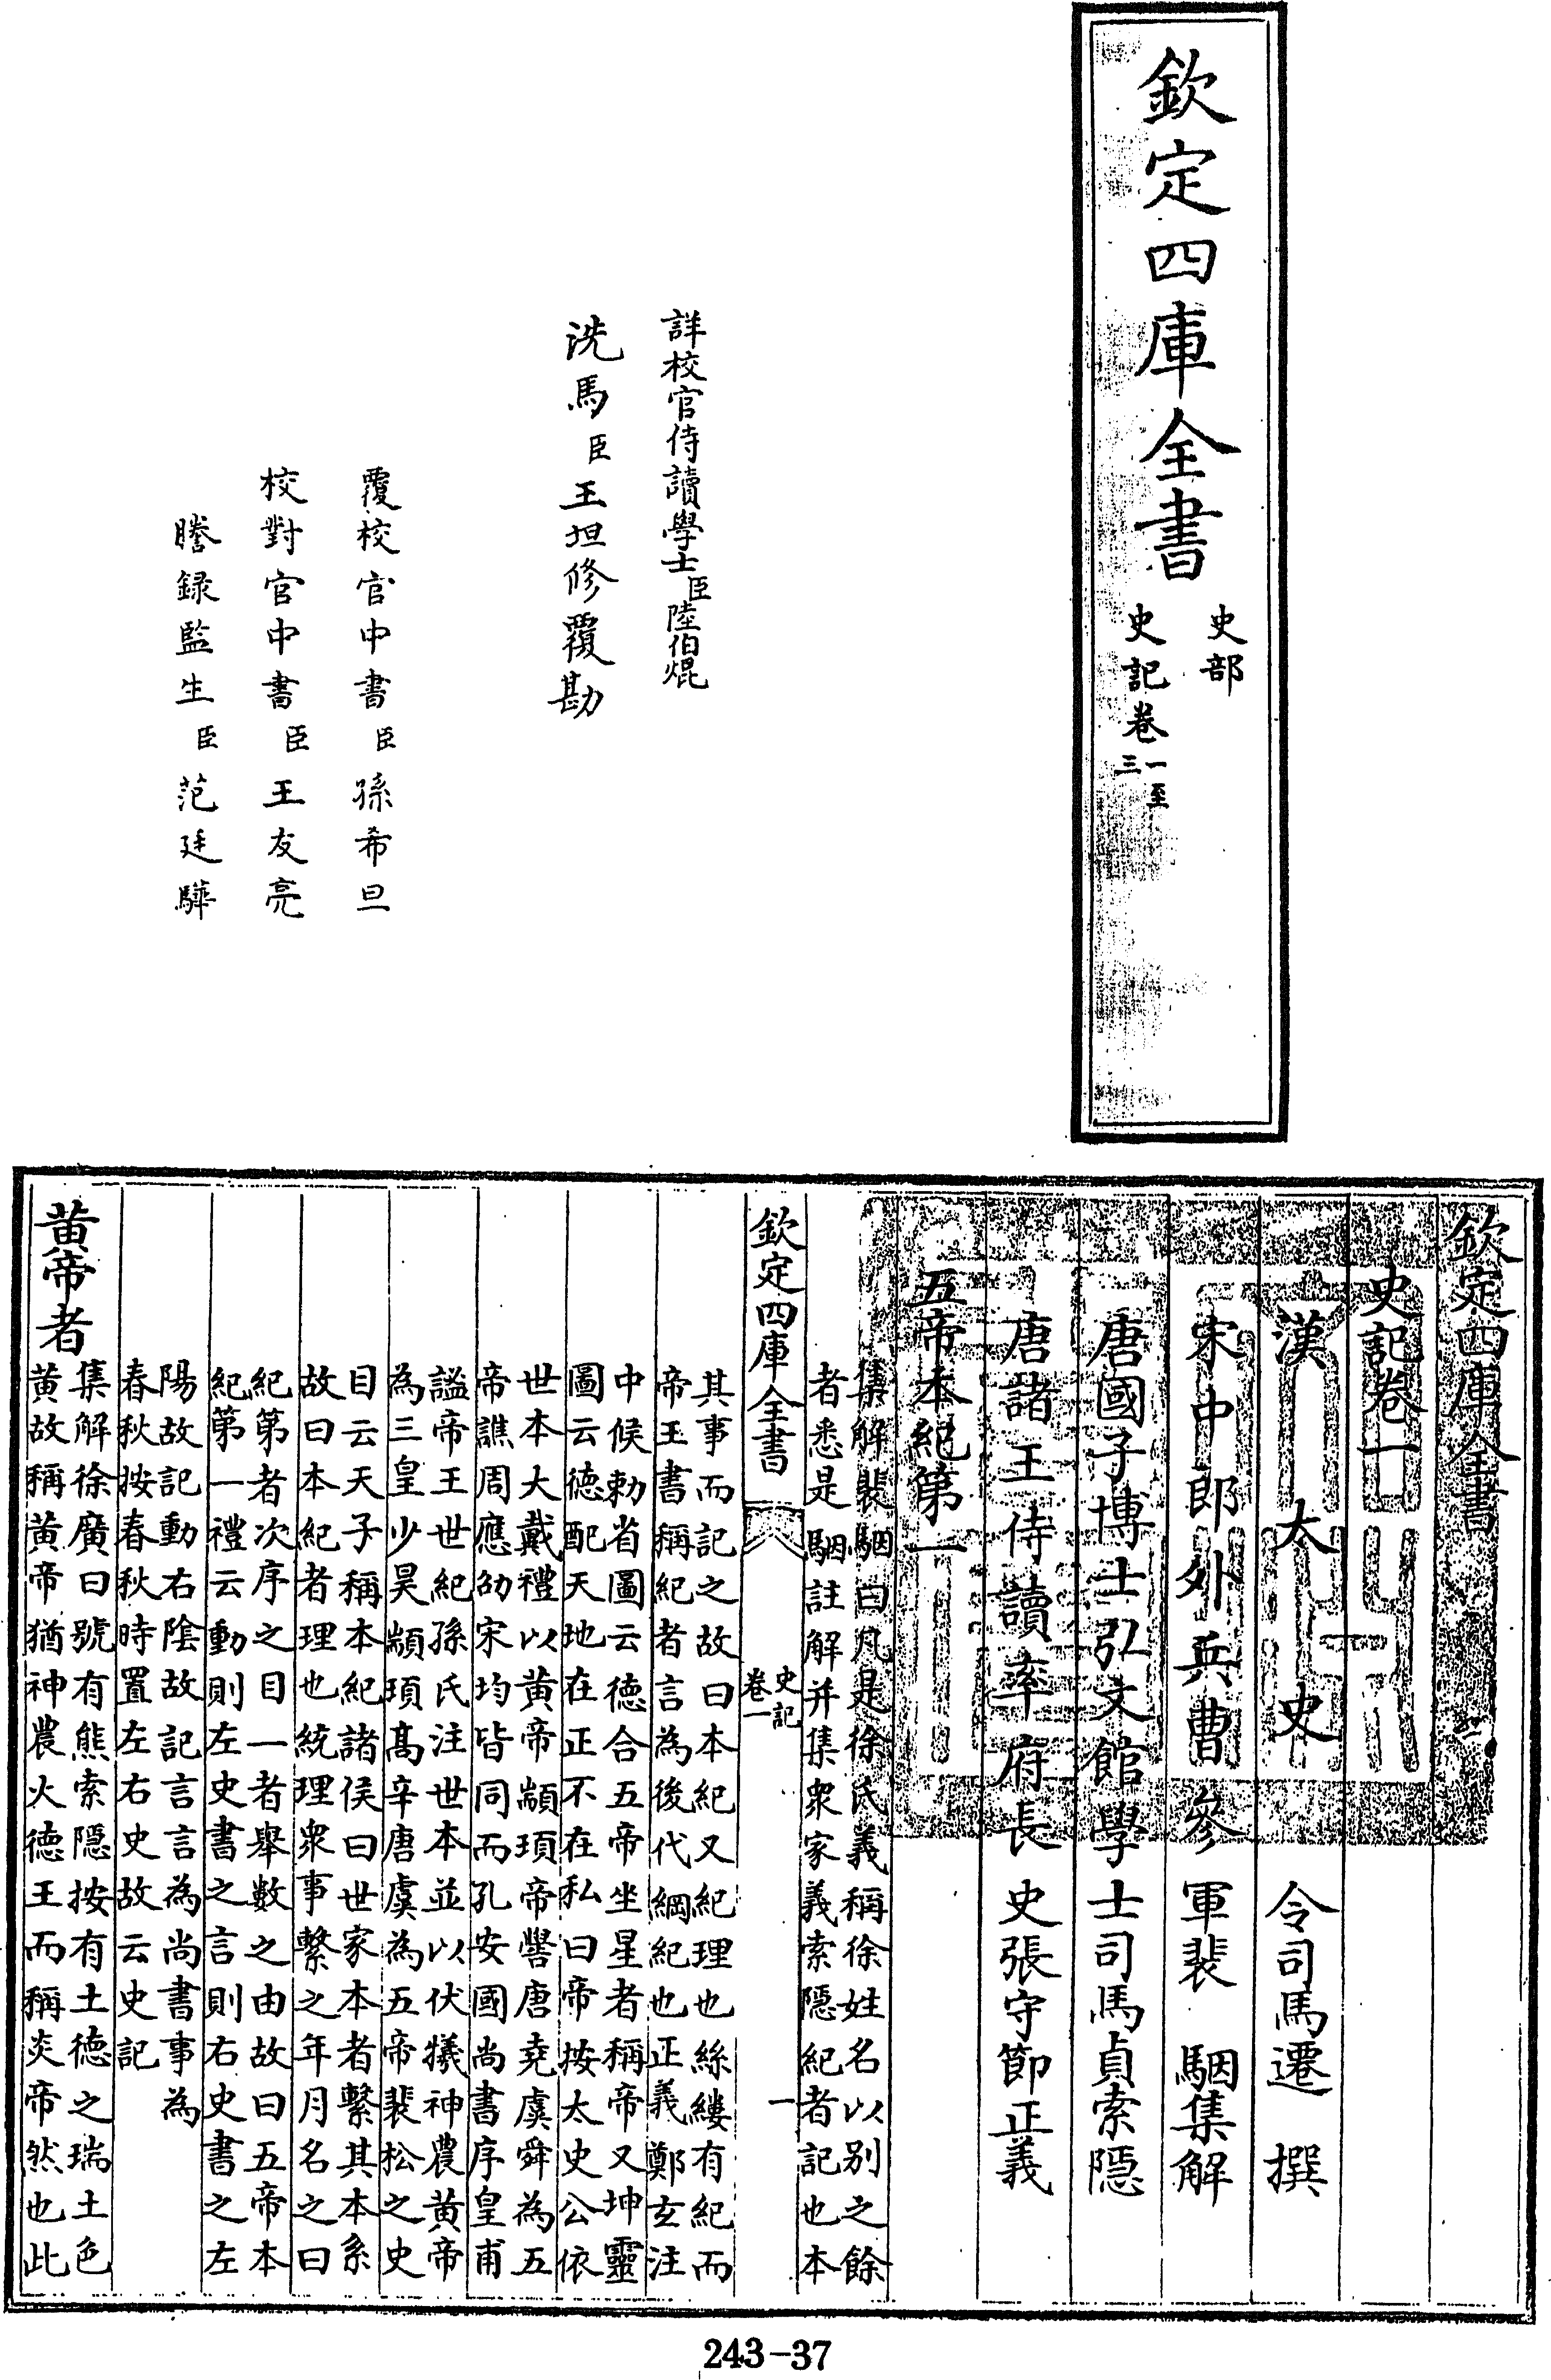 欽定四庫全書
史部
史記卷一至三
詳校官侍讀學士臣陸伯焜
洗馬臣王坦修覆勘
覆校官中書臣孫希旦
校對官中書臣王友亮
謄録監生臣范廷驊
欽定四庫全書
史記卷一
漢太史令司馬遷撰
宋中郎外兵曹參軍裴駰集解
唐國子博士弘文館學士司馬貞索隠
唐諸王侍讀率府長史張守節正義
五帝本紀第一
集解裴駰曰凡是徐氏義稱徐姓名以别之餘
者悉是駰註解并集衆家義索隠紀者記也本
欽定四庫全書
史記
卷一
一
其事而記之故曰本紀又紀理也絲縷有紀而
帝王書稱紀者言為後代綱紀也正義鄭玄注
中候勅省圖云德合五帝坐星者稱帝又坤靈
圖云德配天地在正不在私曰帝按太史公依
世本大戴禮以黄帝顓頊帝嚳唐堯虞舜為五
帝譙周應劭宋均皆同而孔安國尚書序皇甫
謐帝王世紀孫氏注世本並以伏犧神農黄帝
為三皇少昊顓頊髙辛唐虞為五帝裴松之史
目云天子稱本紀諸侯曰世家本者繫其本系
故曰本紀者理也統理衆事繫之年月名之曰
紀第者次序之目一者舉數之由故曰五帝本
紀第一禮云動則左史書之言則右史書之左
陽故記動右陰故記言言為尚書事為
春秋按春秋時置左右史故云史記
黄帝者
集解徐廣曰號有熊索隠按有土德之瑞土色
黄故稱黄帝猶神農火德王而稱炎帝然也此
243-37